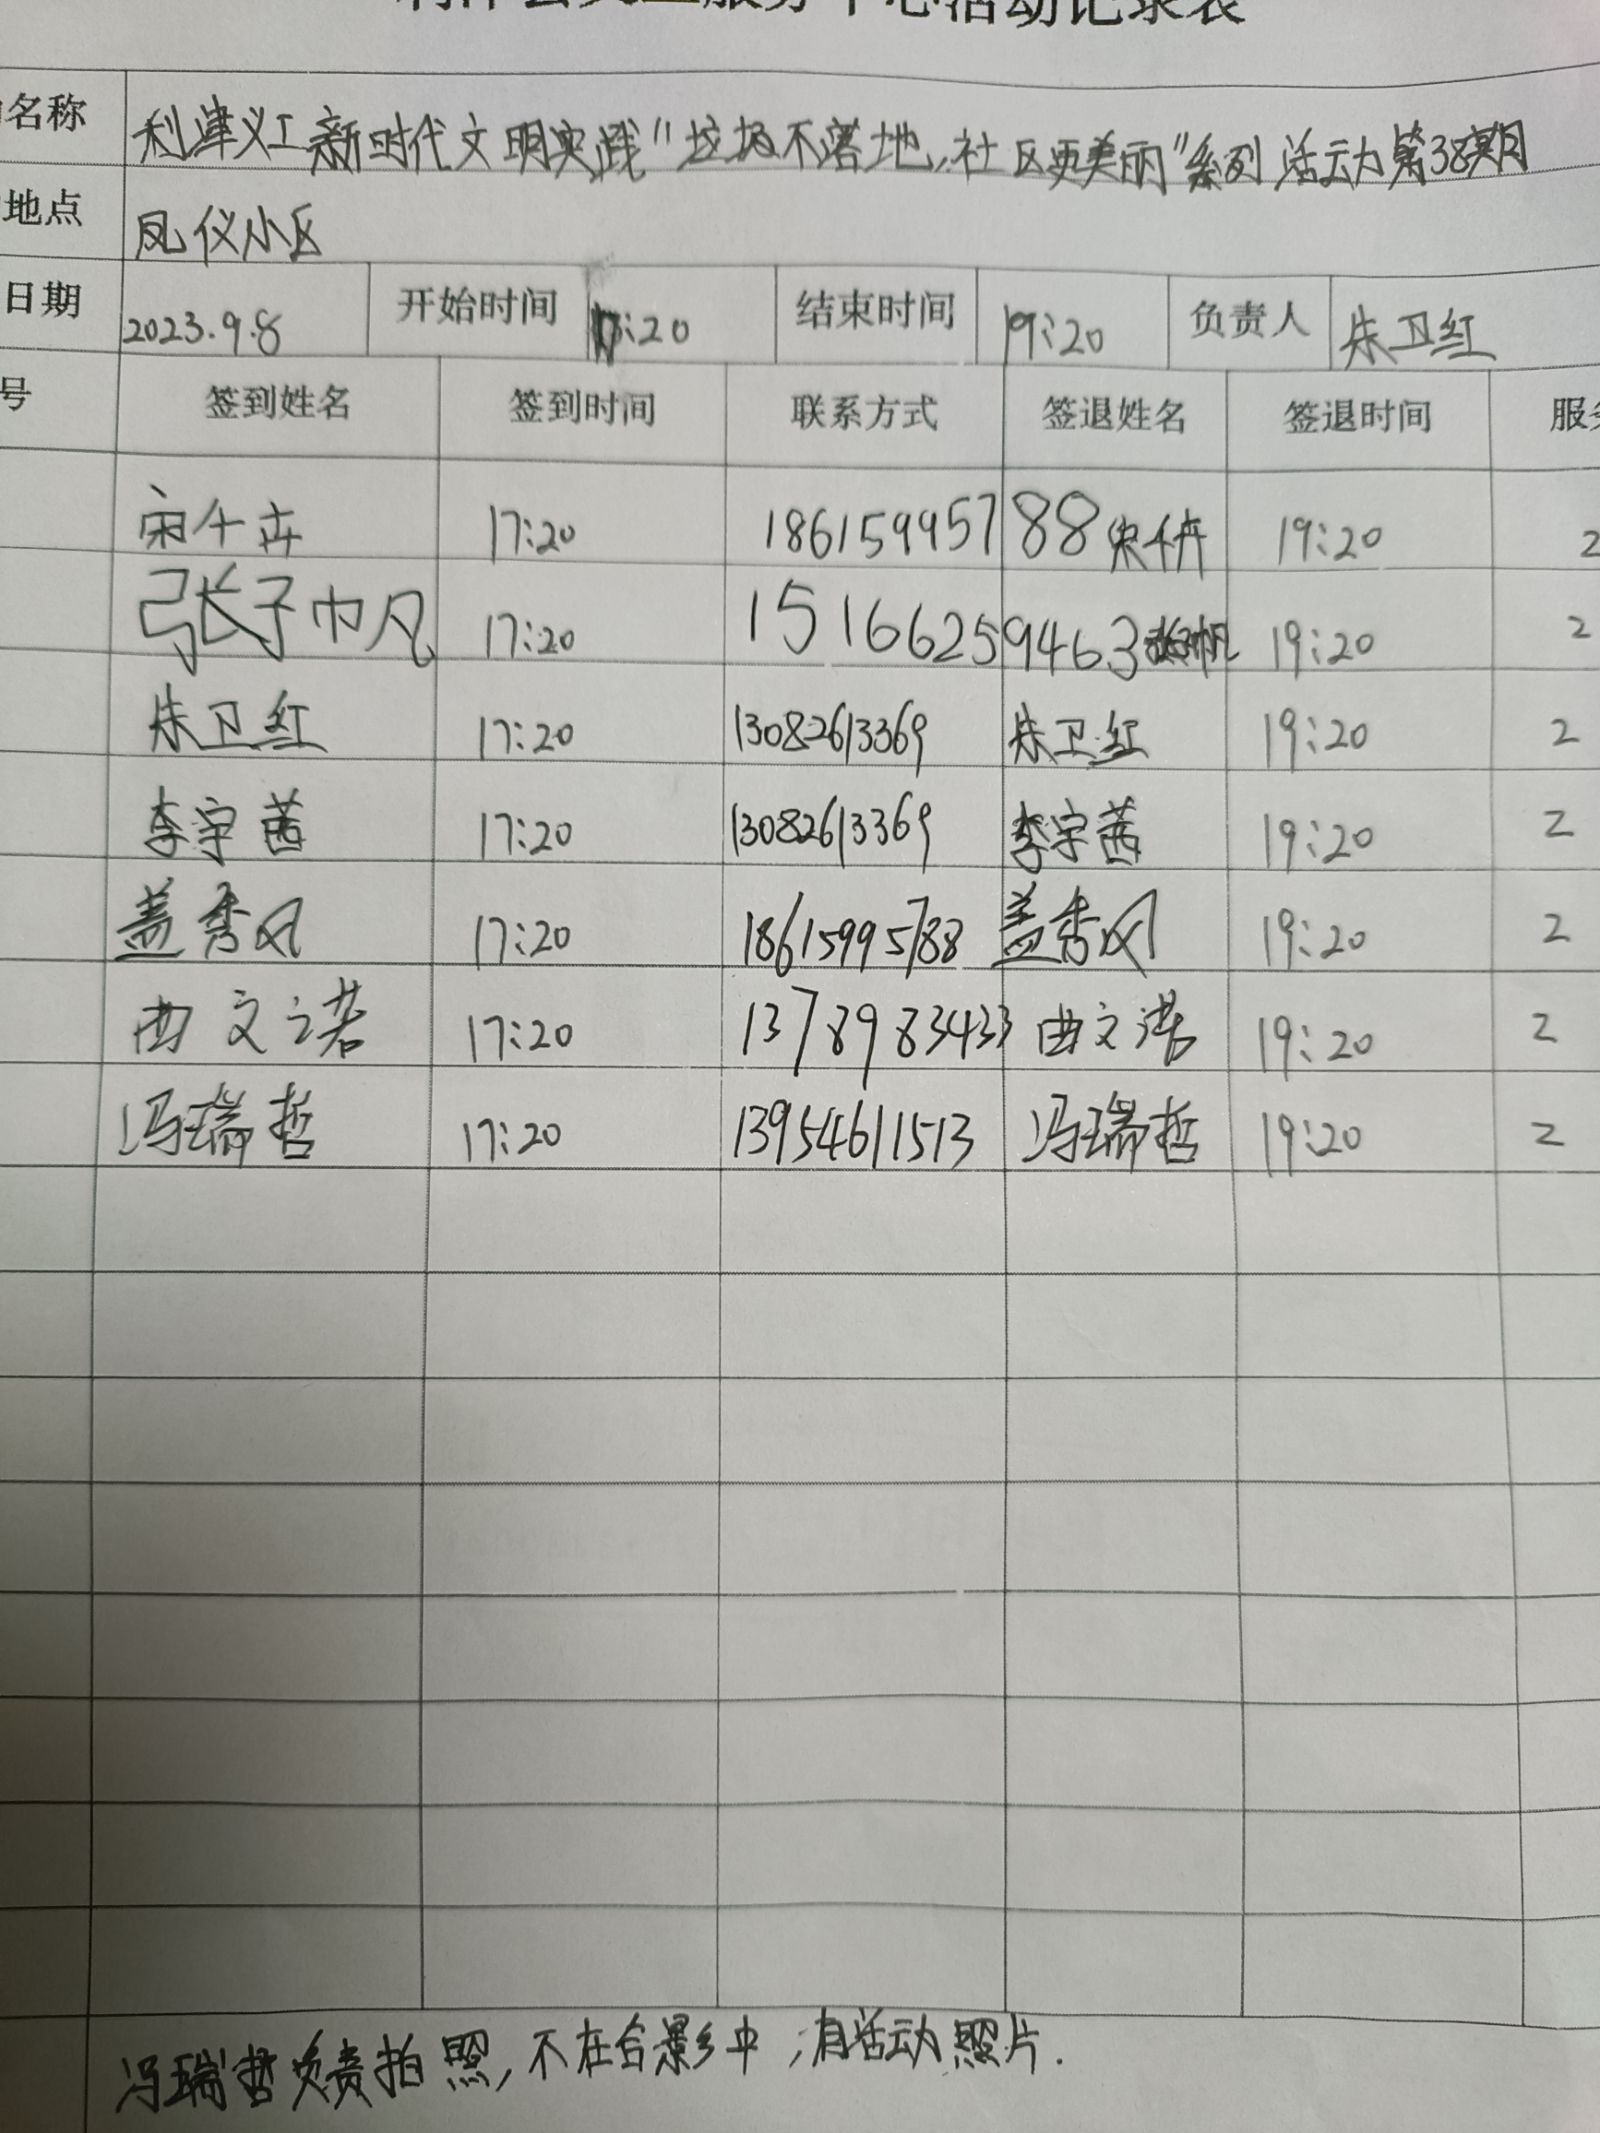 服务中心活动记录表
名称 利津义工新时代文明实践"垃圾不落地,社区更美丽"系列活动第38期
地点 凤仪小区
日期 2023.9.8 开始时间 17:20 结束时间 19:20 负责人 朱卫红
号 签到姓名 签到时间 联系方式 签退姓名 签退时间 服务
宋千卉 17:20 18615995788 宋千卉 19:20 2
张子帆 17:20 15166259463 张子帆 19:20 2
朱卫红 17:20 13082613369 朱卫红 19:20 2
李宇茜 17:20 13082613369 李宇茜 19:20 2
盖秀风 17:20 18615995788 盖秀风 19:20 2
曲文诺 17:20 1378983433 曲文诺 19:20 2
冯瑞哲 17:20 13954611513 冯瑞哲 19:20 2
冯瑞哲负责拍照,不在合影中,有活动照片.